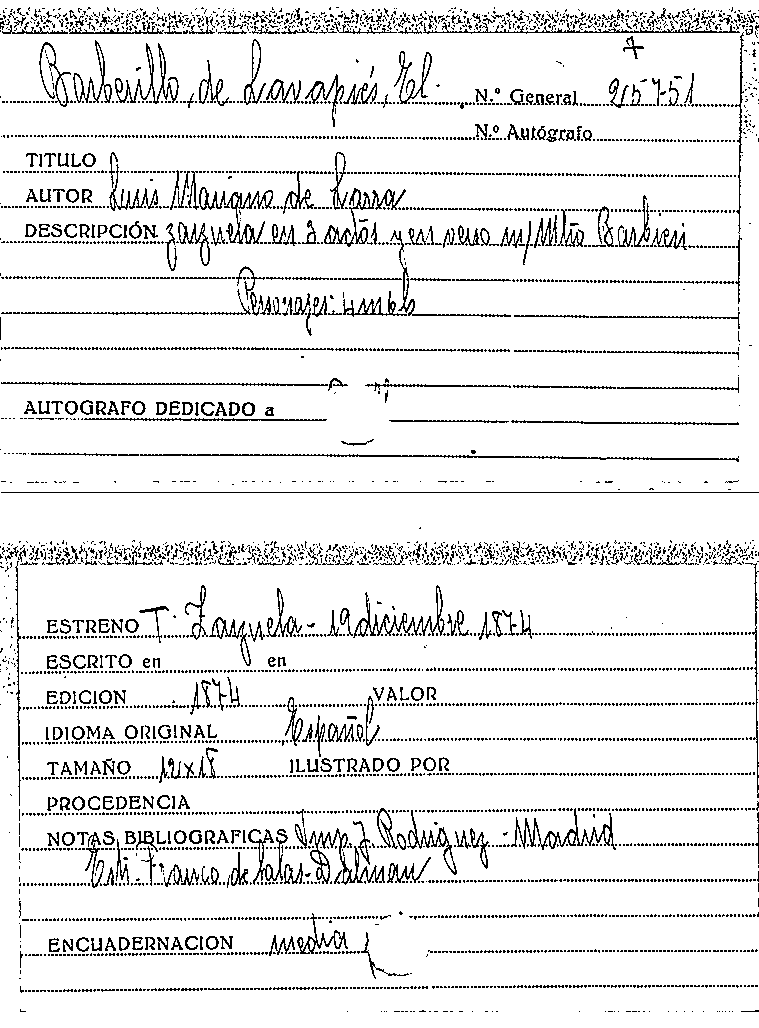 Barberillo, de Lavapiés, El. N.º General 215751
N.º Autógrafo
TITULO
AUTOR Luis Mariano de Larra
DESCRIPCIÓN zarzuela en 3 actos y en verso m/ Mtro Barbieri
Personajes: 4m 6h
AUTOGRAFO DEDICADO a
ESTRENO T. Zarzuela - 19 diciembre 1874
ESCRITO en en
EDICION 1874 VALOR
IDIOMA ORIGINAL Español
TAMAÑO 12x18 ILUSTRADO POR
PROCEDENCIA
NOTAS BIBLIOGRAFICAS Imp. J. Rodriguez - Madrid
Franco de Salas
ENCUADERNACION media